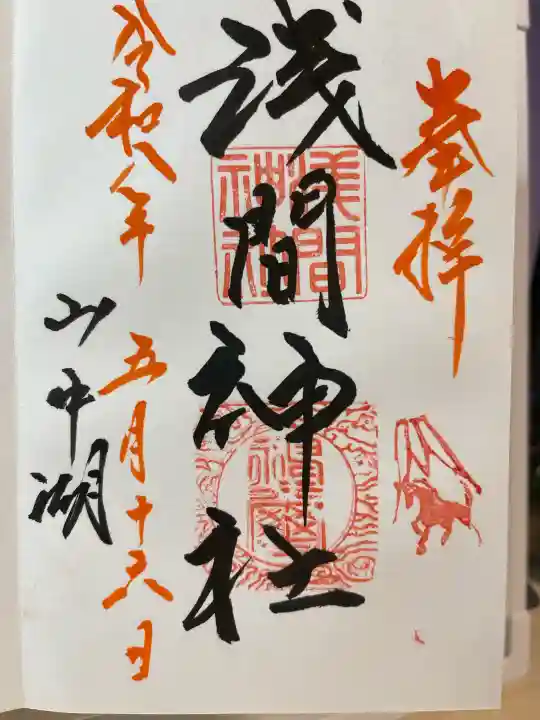 奉拝
浅間神社
浅間神社
令和八年 五月十六日
山中湖